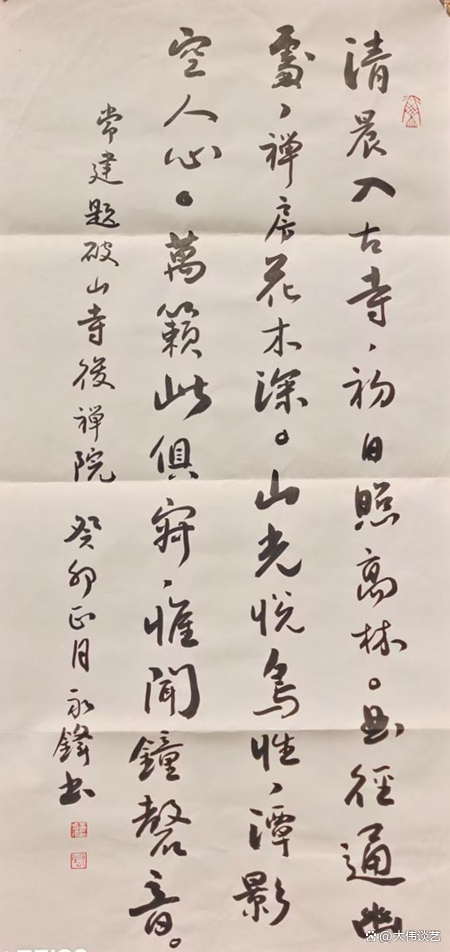 清晨入古寺，初日照高林。曲徑通幽
處，禅房花木深。山光悦鸟性，潭影
空人心。萬籟此俱寂，惟聞鐘磬音。
常建题破山寺後禅院 癸卯正月永鋒书
@大伟谈艺